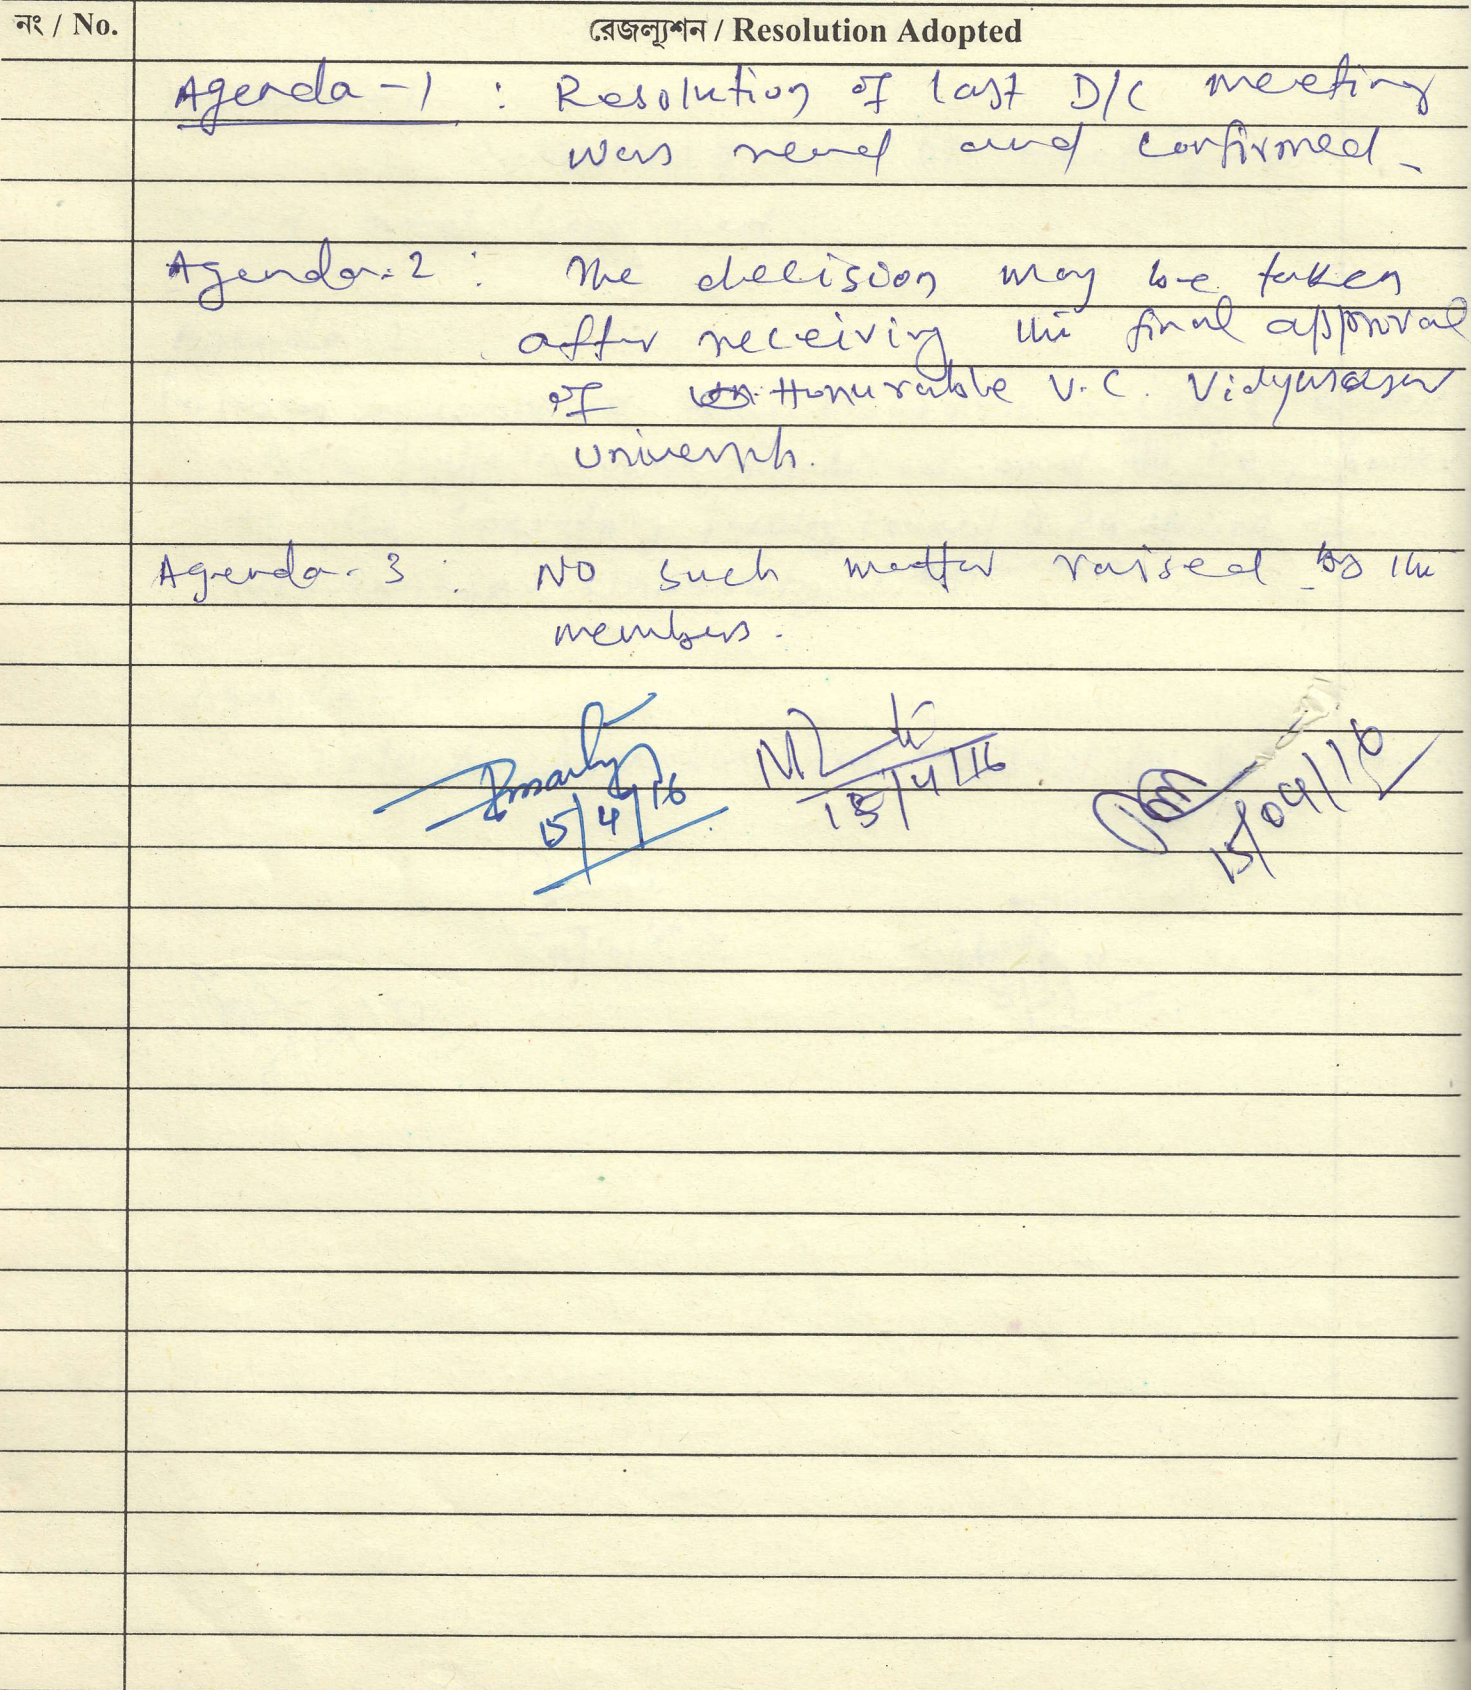 নং / No. রেজল্যুশন / Resolution Adopted
Agenda-1 : Resolution of last D/C meeting
was read and confirmed.
Agenda-2 : The decision may be taken
after receiving the final approval
of Honurable V.C. Vidyasagar
University.
Agenda-3 : NO such matter raised by the
members.
15/4/16 15/4/16 15/04/16